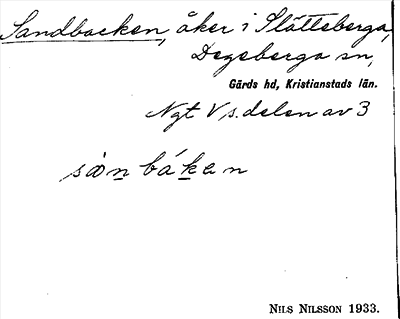 Sandbacken, åker i Slätteberga,
Degeberga sn,
Gärds hd, Kristianstads län.
Ngt V s. delen av 3
NILS NILSSON 1933.